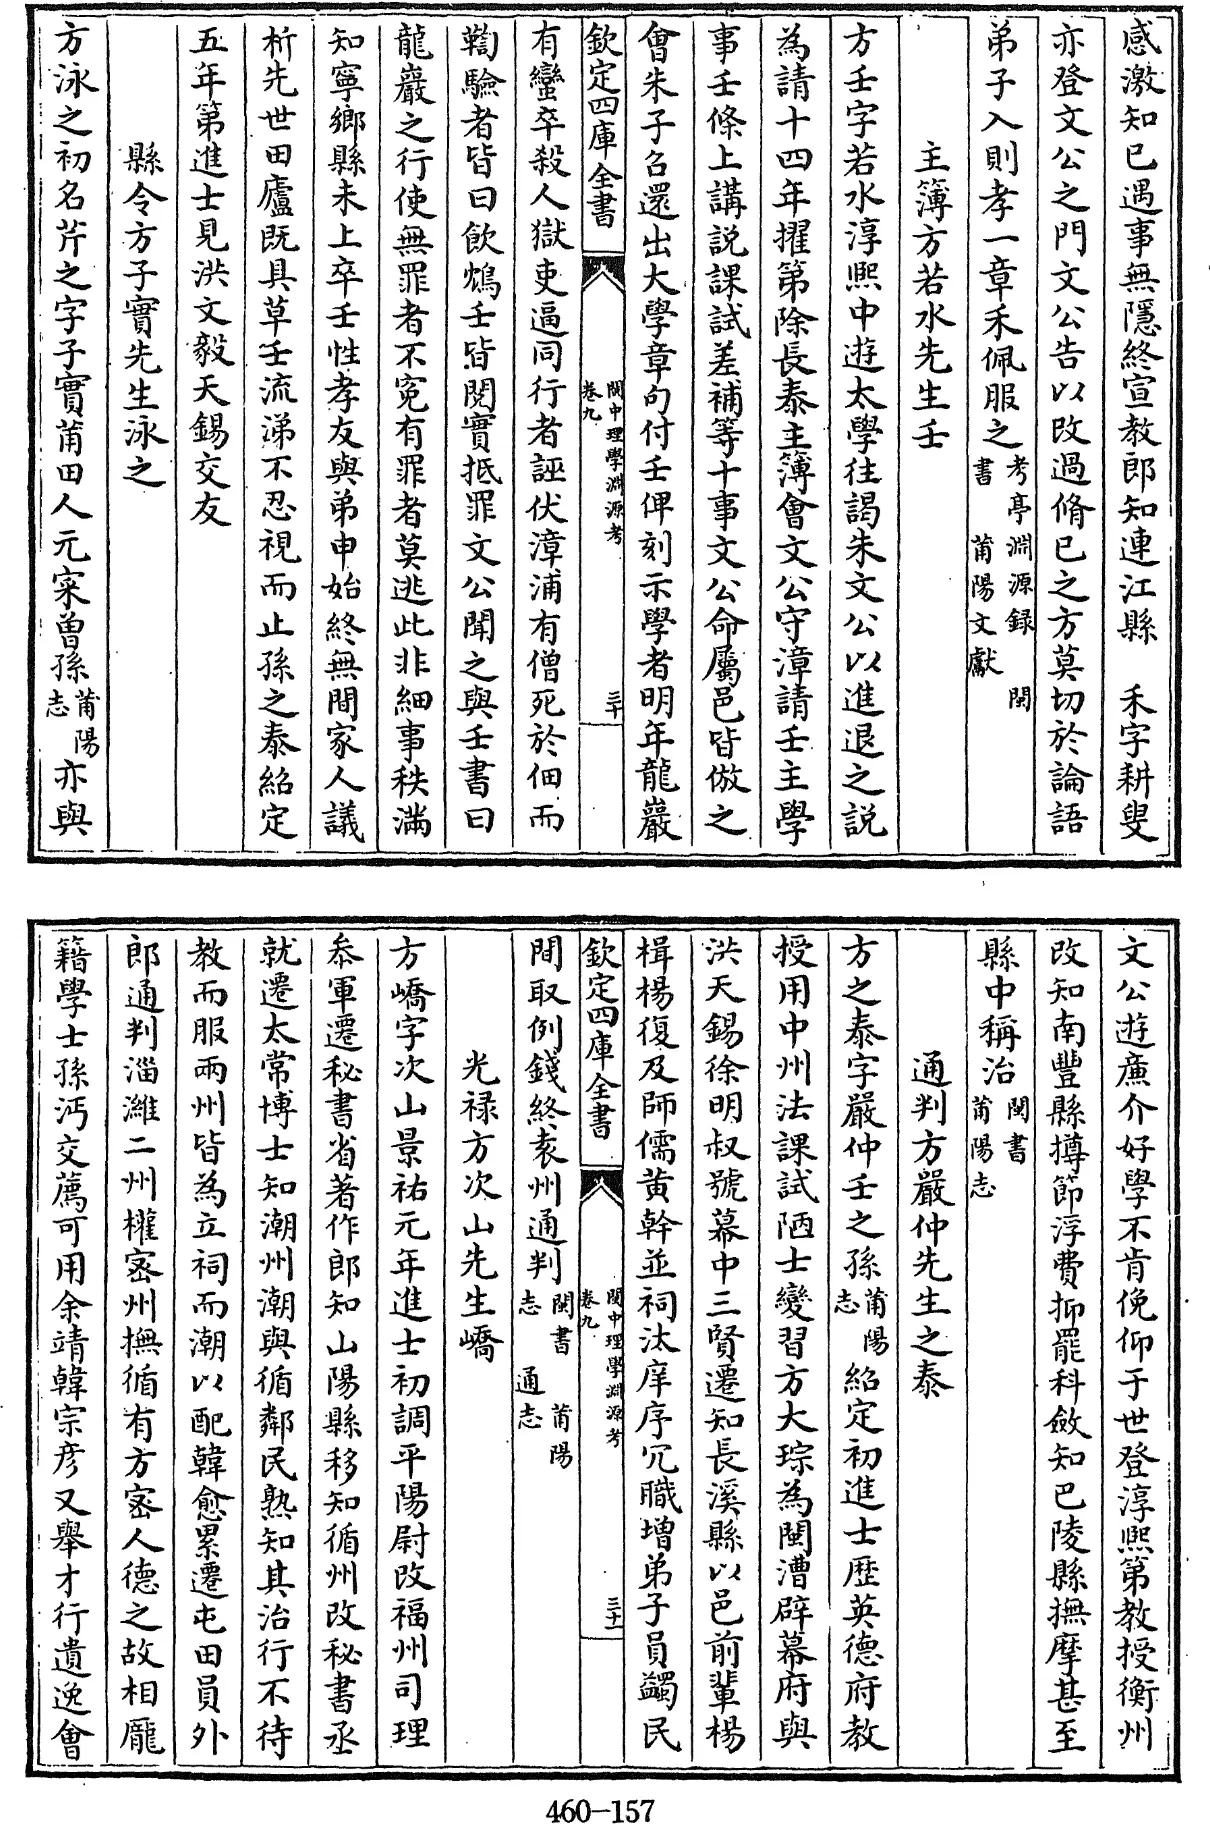 感激知已遇事無隱終宣教郎知連江縣　禾字耕叟
亦登文公之門文公告以改過脩已之方莫切於論語
弟子入則孝一章禾佩服之考亭淵源録　閩書　莆陽文獻
主簿方若水先生壬
方壬字若水淳熙中遊太學往謁朱文公以進退之説
為請十四年擢第除長泰主簿會文公守漳請壬主學
事壬條上講説課試差補等十事文公命屬邑皆倣之
會朱子召還出大學章句付壬俾刻示學者明年龍巖
欽定四庫全書
閩中理學淵源考
卷九
三十
有蠻卒殺人獄吏逼同行者誣伏漳浦有僧死於佃而
鞫驗者皆曰飲鴆壬皆閱實抵罪文公聞之與壬書曰
龍巖之行使無罪者不寃有罪者莫逃此非細事秩滿
知寧鄉縣未上卒壬性孝友與弟申始終無間家人議
析先世田廬既具草壬流涕不忍視而止孫之泰紹定
五年第進士見洪文毅天錫交友
縣令方子實先生泳之
方泳之初名芹之字子實莆田人元寀曾孫莆陽志亦與
文公遊㢘介好學不肯俛仰于世登淳熙第教授衡州
改知南豐縣撙節浮費抑罷科斂知巴陵縣撫摩甚至
縣中稱治閩書　莆陽志
通判方嚴仲先生之泰
方之泰字嚴仲壬之孫莆陽志紹定初進士歴英德府教
授用中州法課試陋士變習方大琮為閩漕辟幕府與
洪天錫徐明叔號幕中三賢遷知長溪縣以邑前輩楊
楫楊復及師儒黄幹並祠汰庠序冗職增弟子員蠲民
欽定四庫全書
閩中理學淵源考
卷九
三十一
間取例錢終袁州通判閩書　莆陽志　通志
光禄方次山先生嶠
方嶠字次山景祐元年進士初調平陽尉改福州司理
叅軍遷秘書省著作郎知山陽縣移知循州改秘書丞
就遷太常博士知潮州潮與循鄰民熟知其治行不待
教而服兩州皆為立祠而潮以配韓愈累遷屯田員外
郎通判淄濰二州權宻州撫循有方宻人德之故相龎
籍學士孫沔交薦可用余靖韓宗彦又舉才行遺逸會
460-157